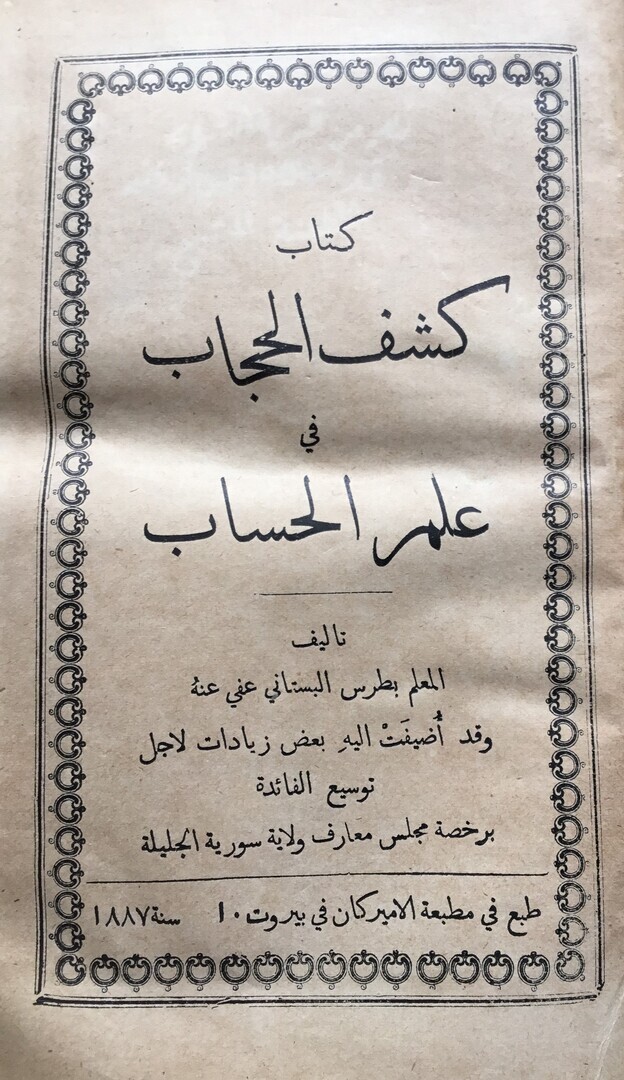 كتاب
كشف الحجاب
في
علم الحساب
تاليف
المعلم بطرس البستاني عفي عنهُ
وقد أُضيفَتْ اليهِ بعض زيادات لاجل
توسيع الفائدة
برخصة مجلس معارف ولاية سورية الجليلة
طبع في مطبعة الاميركان في بيروت ١٠ سنة ١٨٨٧